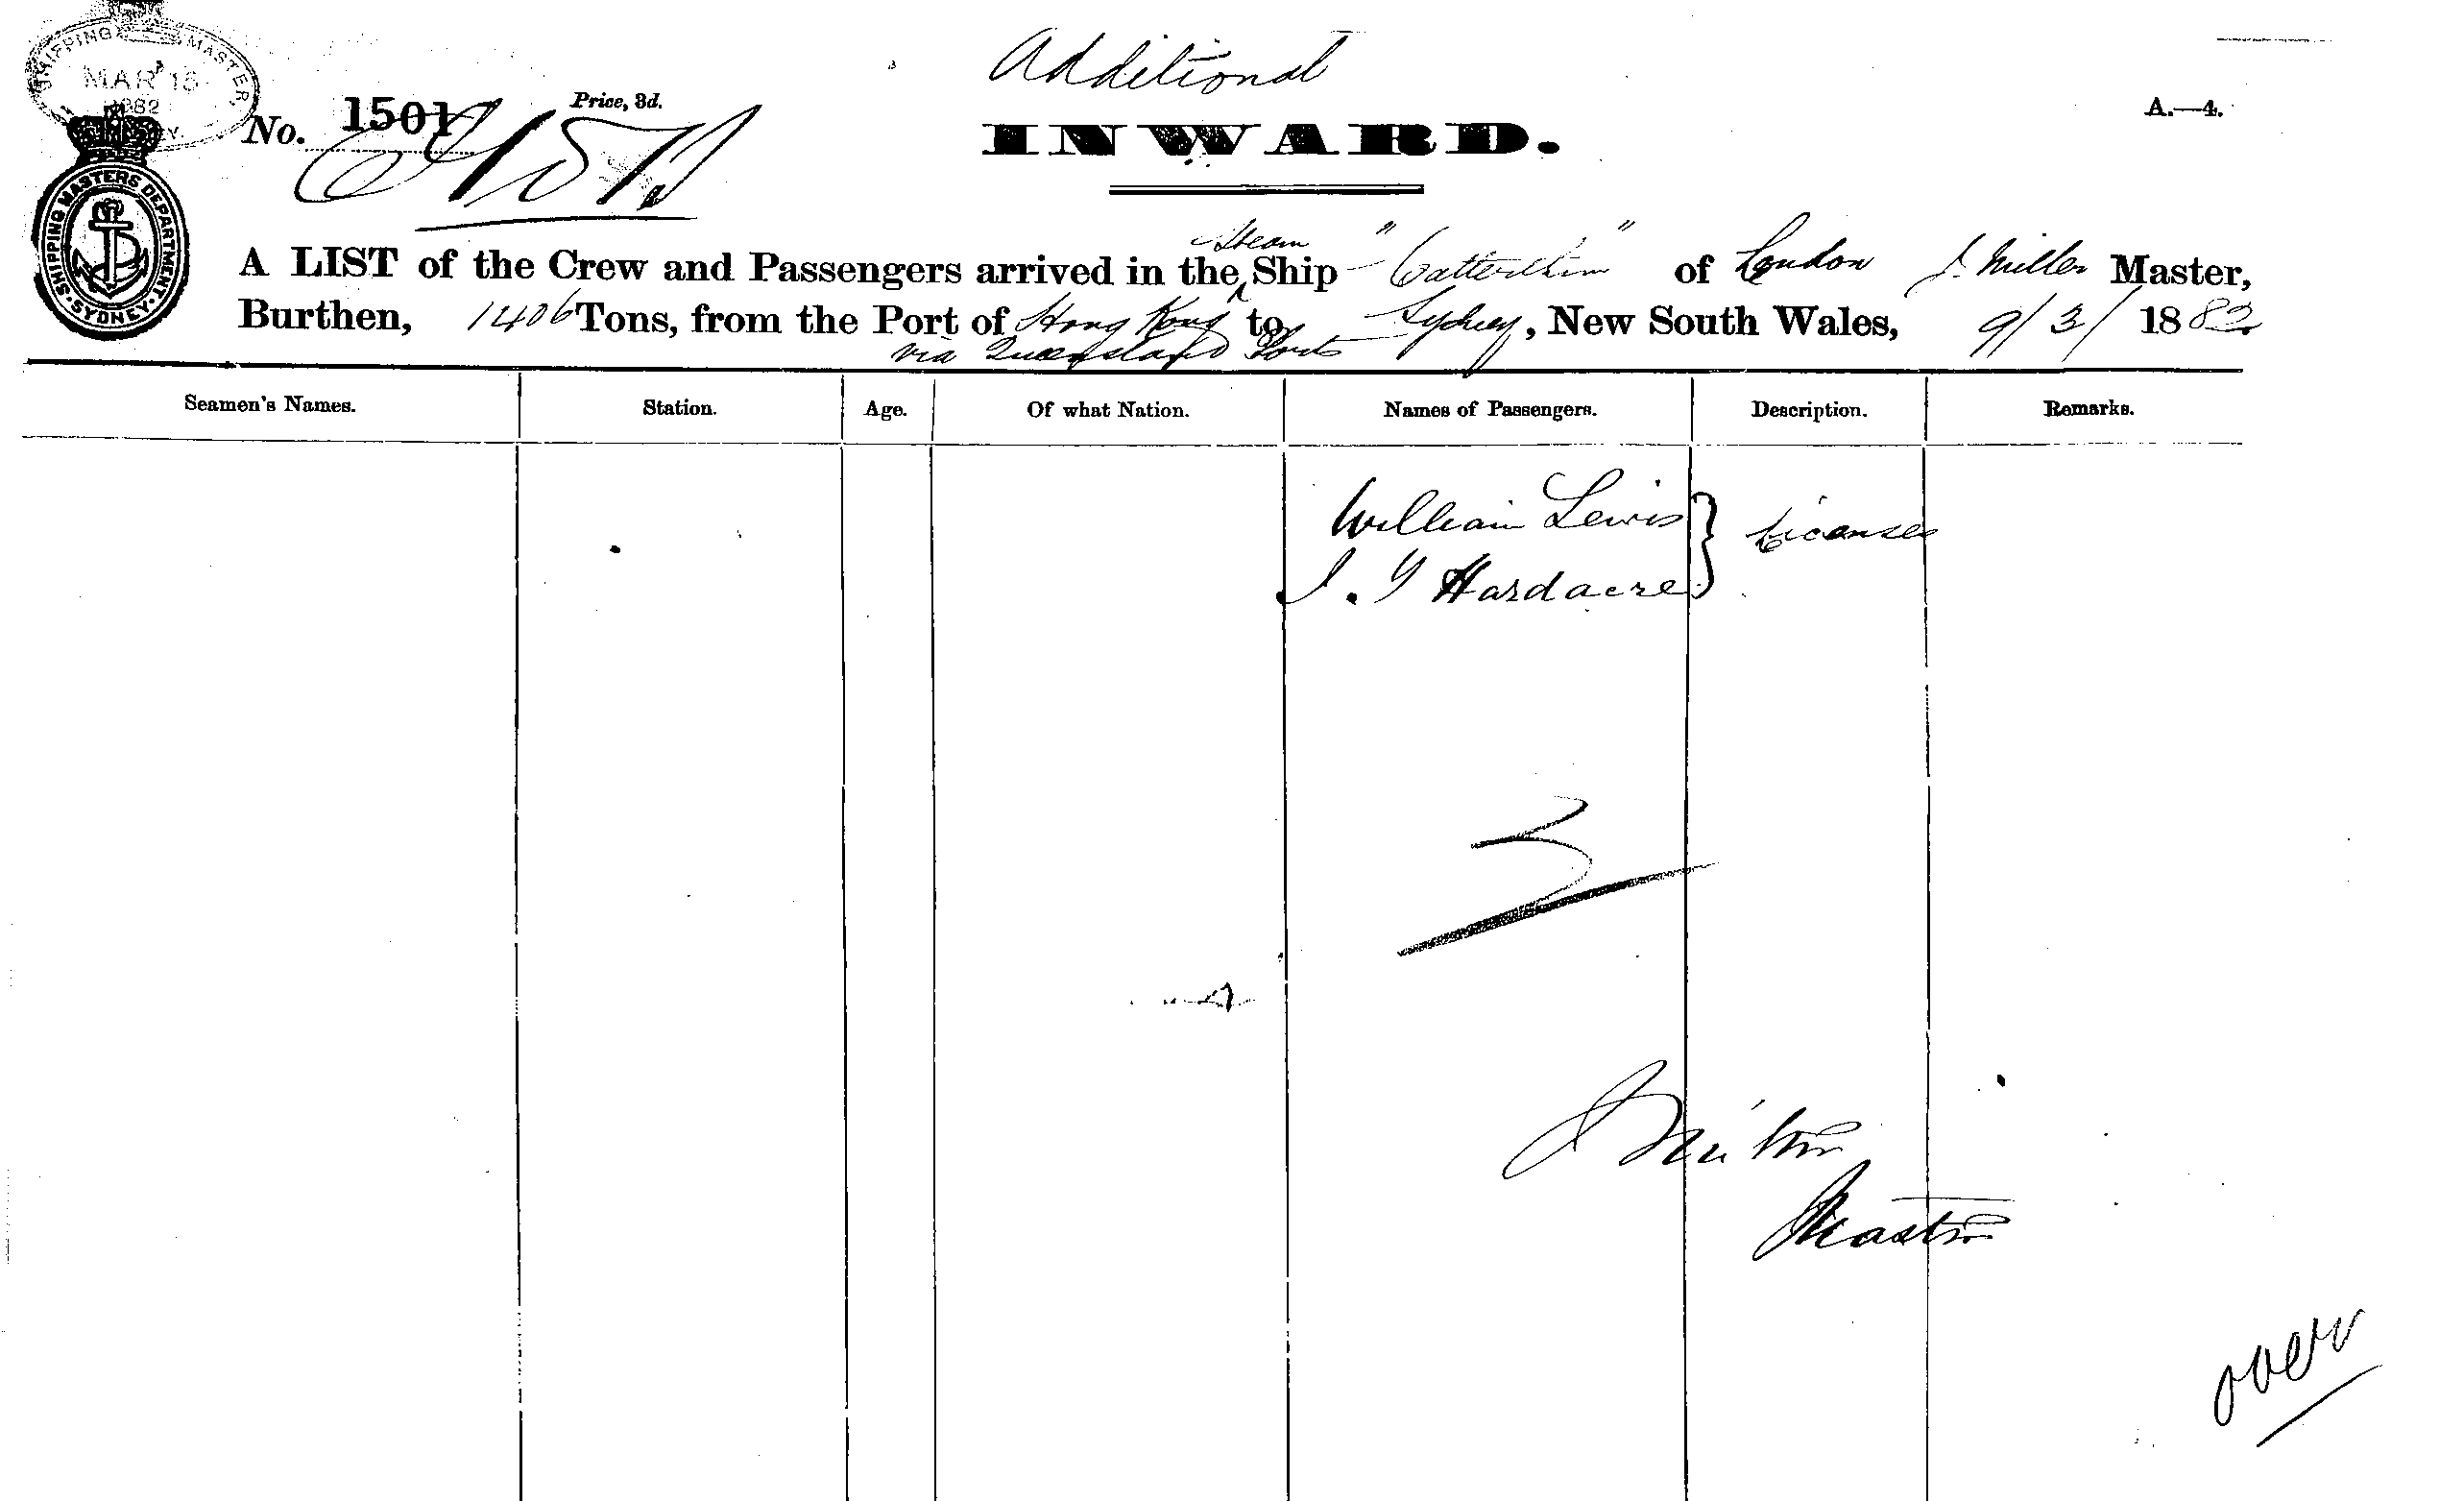 SHIPPING MASTER
MAR 16
1882
SHIPPING MASTERS DEPARTMENT
SYDNEY
No. 1501
Price, 3d.
Additional
INWARD.
A.—4.
A LIST of the Crew and Passengers arrived in the Steam Ship "Catterthun" of London J. Miller Master,
Burthen, 1406 Tons, from the Port of Hong Kong to Sydney, New South Wales, 9/3/1882
via Queensland Ports
Seamen's Names. Station. Age. Of what Nation. Names of Passengers. Description. Remarks.
William Lewis
J. Y Hardacre
3
J Miller
Master
over